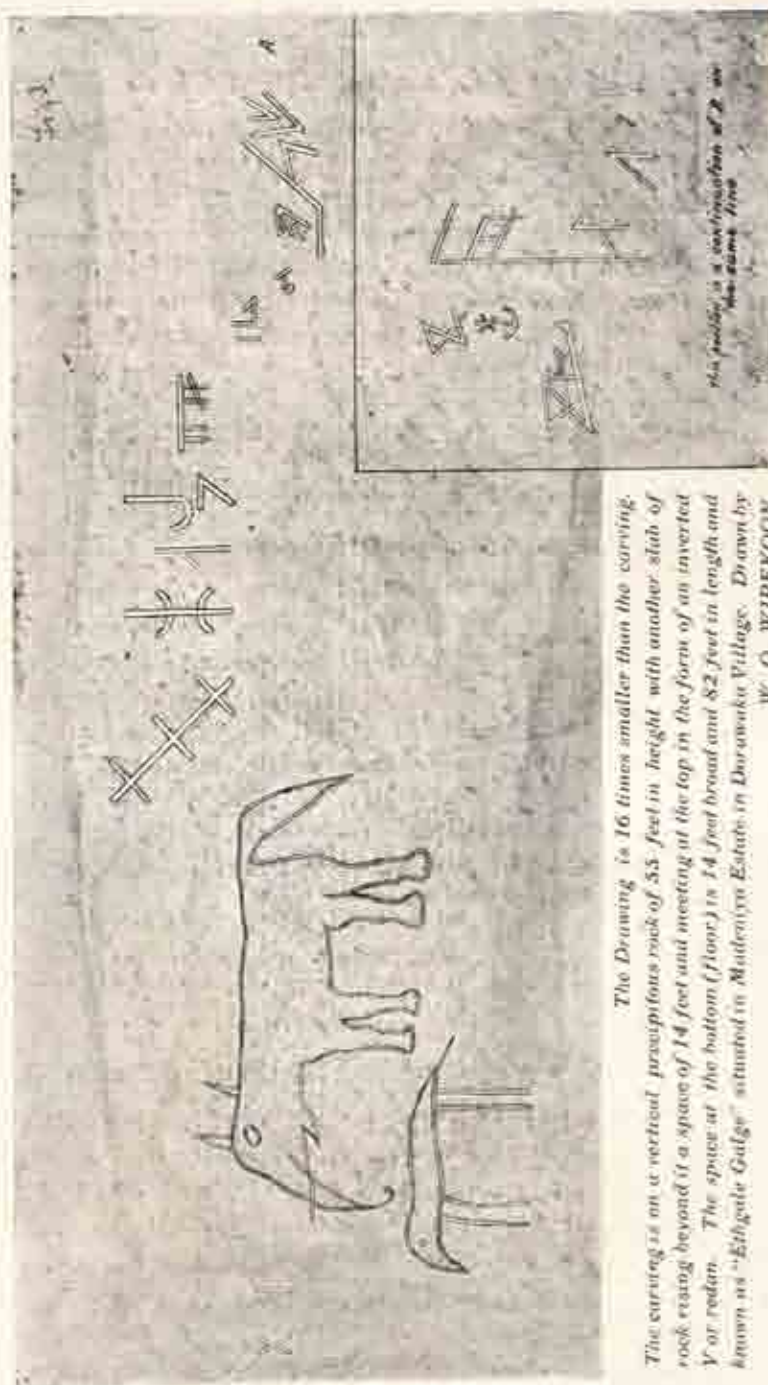 this portion is a continuation of 2 on
the same line
The Drawing is 16 times smaller than the carving.
The carving is on a vertical precipitous rock of 55 feet in height with another slab of
rock rising beyond it a space of 14 feet and meeting at the top in the form of an inverted
V or redan. The space at the bottom (floor) is 14 feet broad and 82 feet in length and
known as "Ethgale Galge" situated in Madeniya Estate in Dorawaka Village. Drawn by